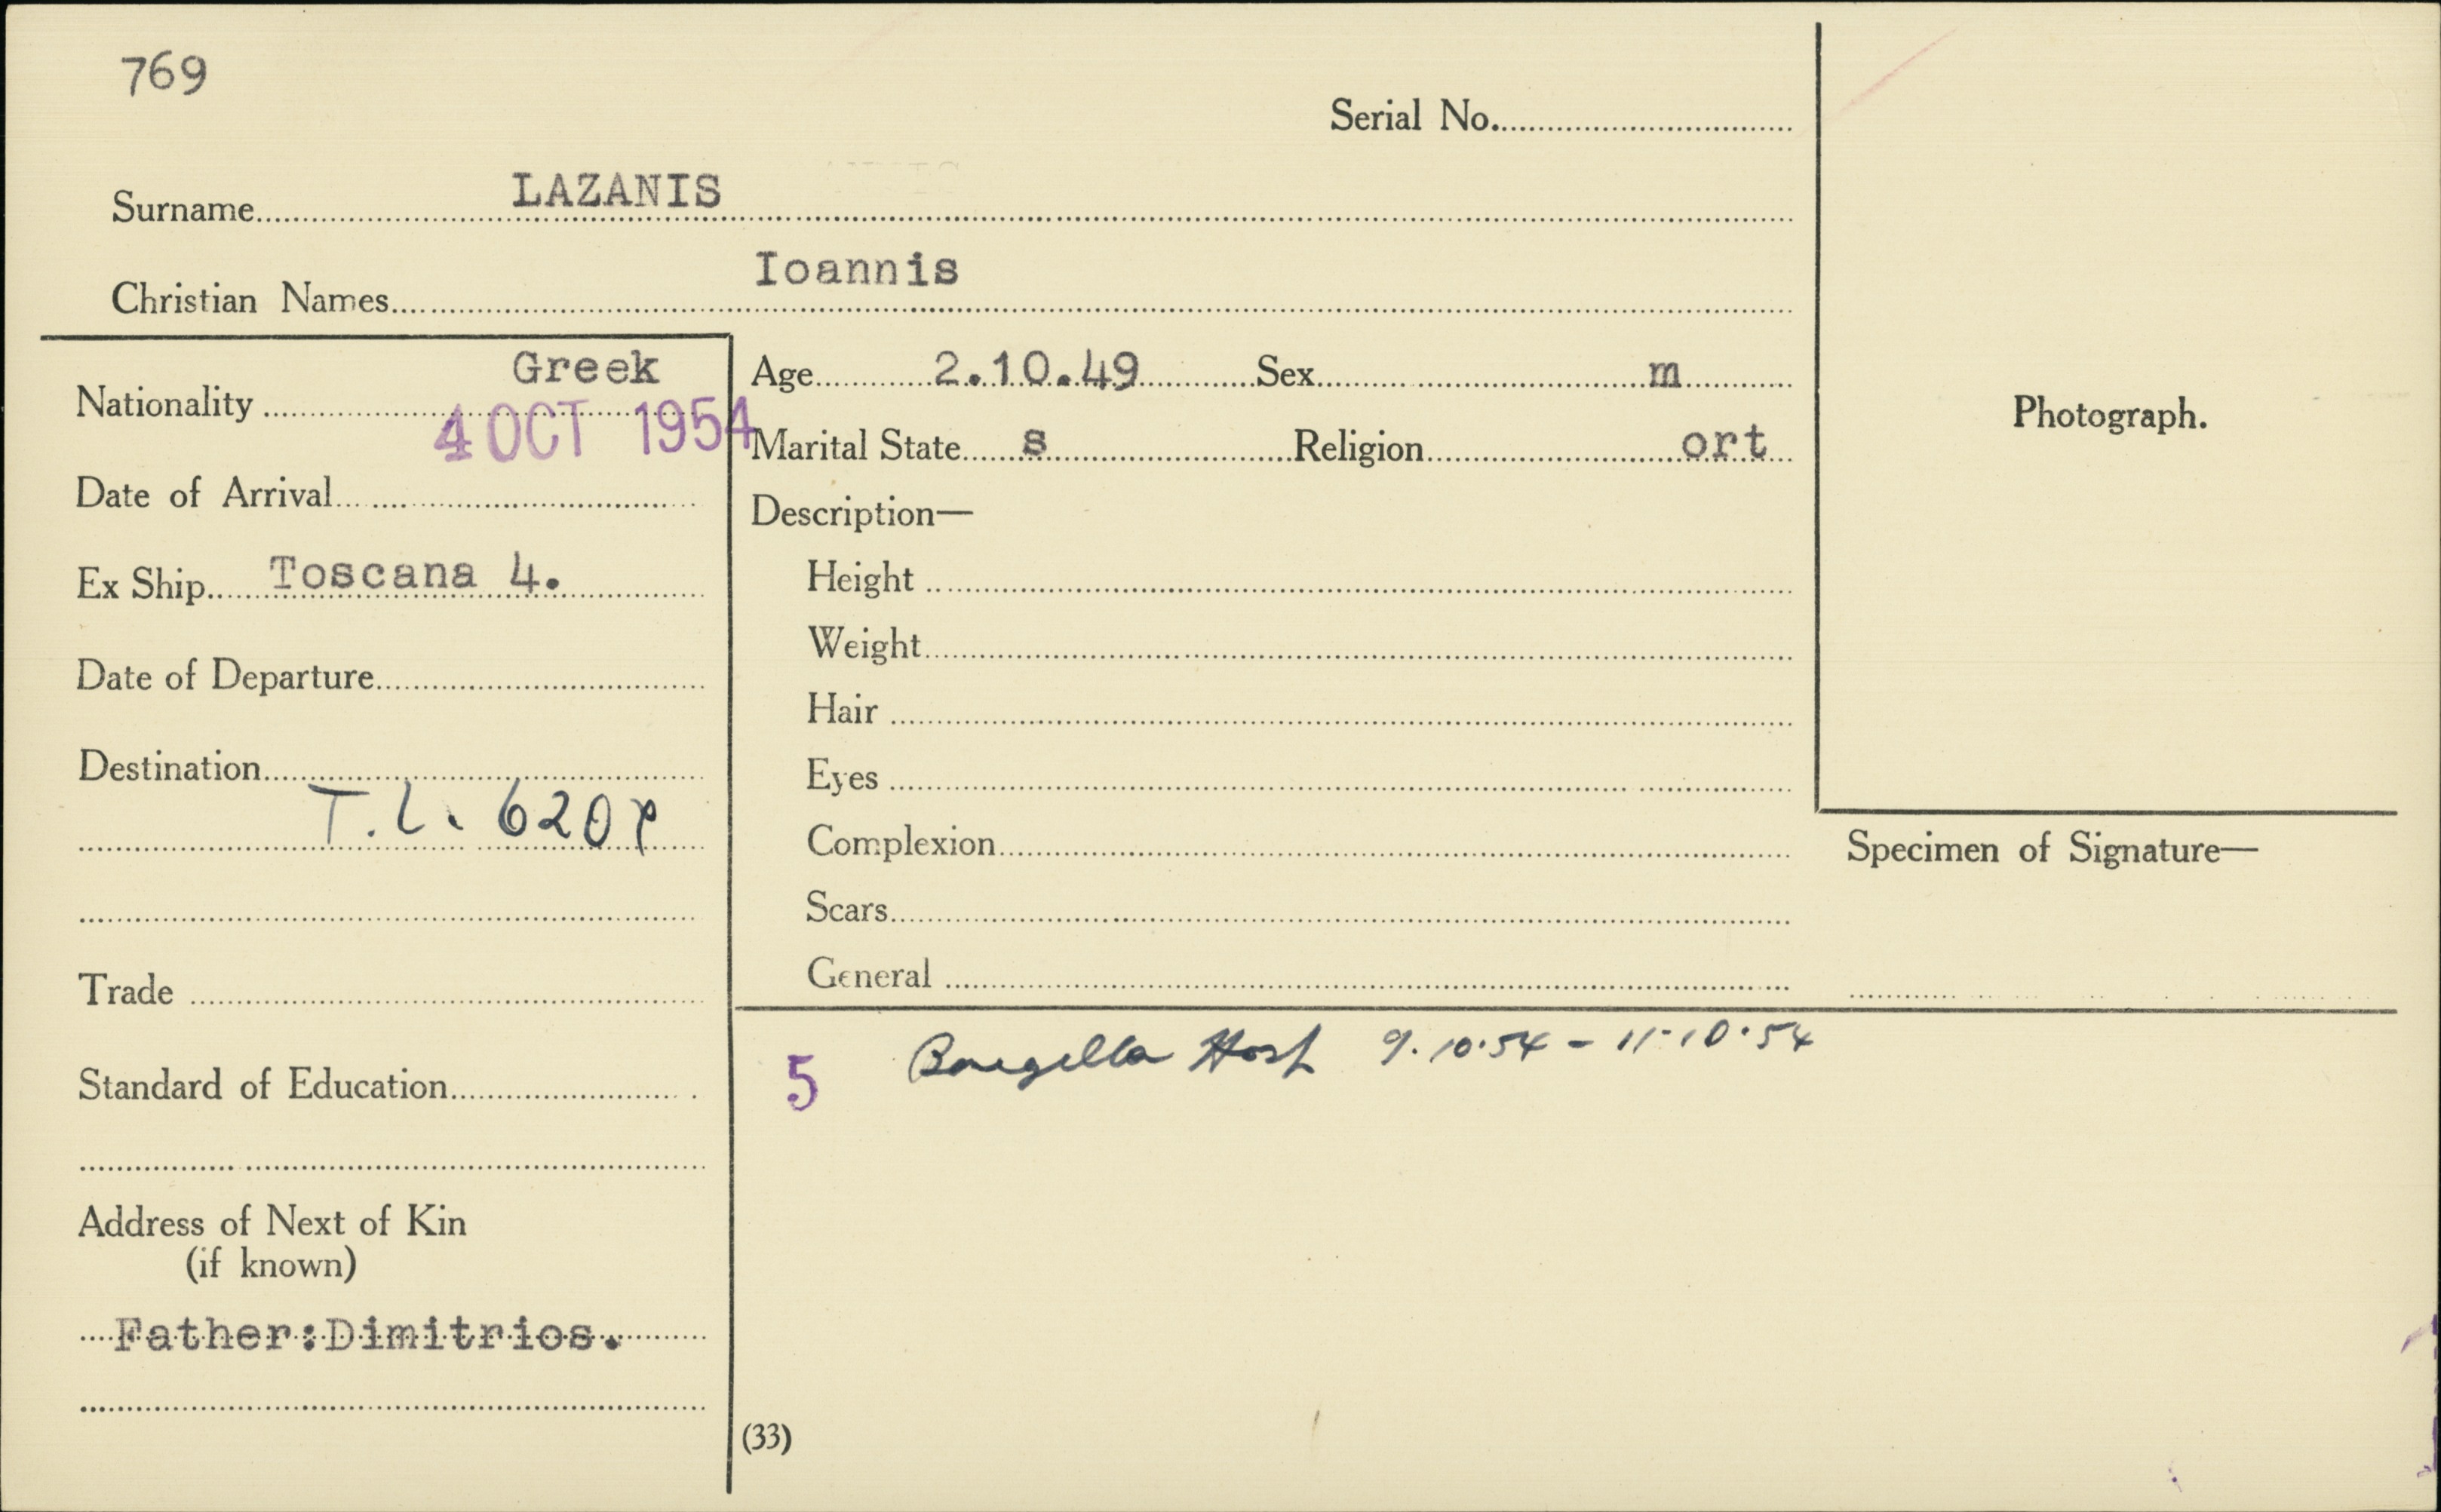 769
Serial No.
Surname LAZANIS
Christian Names Ioannis
Nationality Greek
4 OCT 1954
Date of Arrival
Ex Ship Toscana 4.
Date of Departure
Destination
T.L.
Trade
Standard of Education
Address of Next of Kin
(if known)
Father:Dimitrios.
Age 2.10.49 Sex m
Marital State s Religion ort
Description—
Height
Weight
Hair
Eyes
Complexion
Scars
General
5 Hosp 9.10.54 - 11.10.54
(33)
Photograph.
Specimen of Signature—